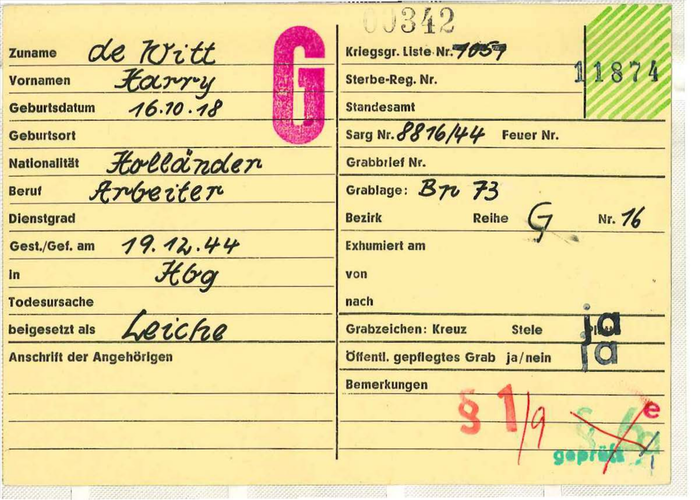 00342
Zuname de Witt
Vornamen Harry
Geburtsdatum 16.10.18
Geburtsort
Nationalität Holländer
Beruf Arbeiter
Dienstgrad
Gest./Gef. am 19.12.44
in Hbg
Todesursache
beigesetzt als Leiche
Anschrift der Angehörigen
G
Kriegsgr. Liste Nr. 1057
11874
Sterbe-Reg. Nr.
Standesamt
Sarg Nr. 8816/44 Feuer Nr.
Grabbrief Nr.
Grablage: Br 73
Bezirk Reihe G Nr. 16
Exhumiert am
von
nach
Grabzeichen: Kreuz Stele ja
Öffentl. gepflegtes Grab ja/nein ja
Bemerkungen
§ 1/9 e
geprüft